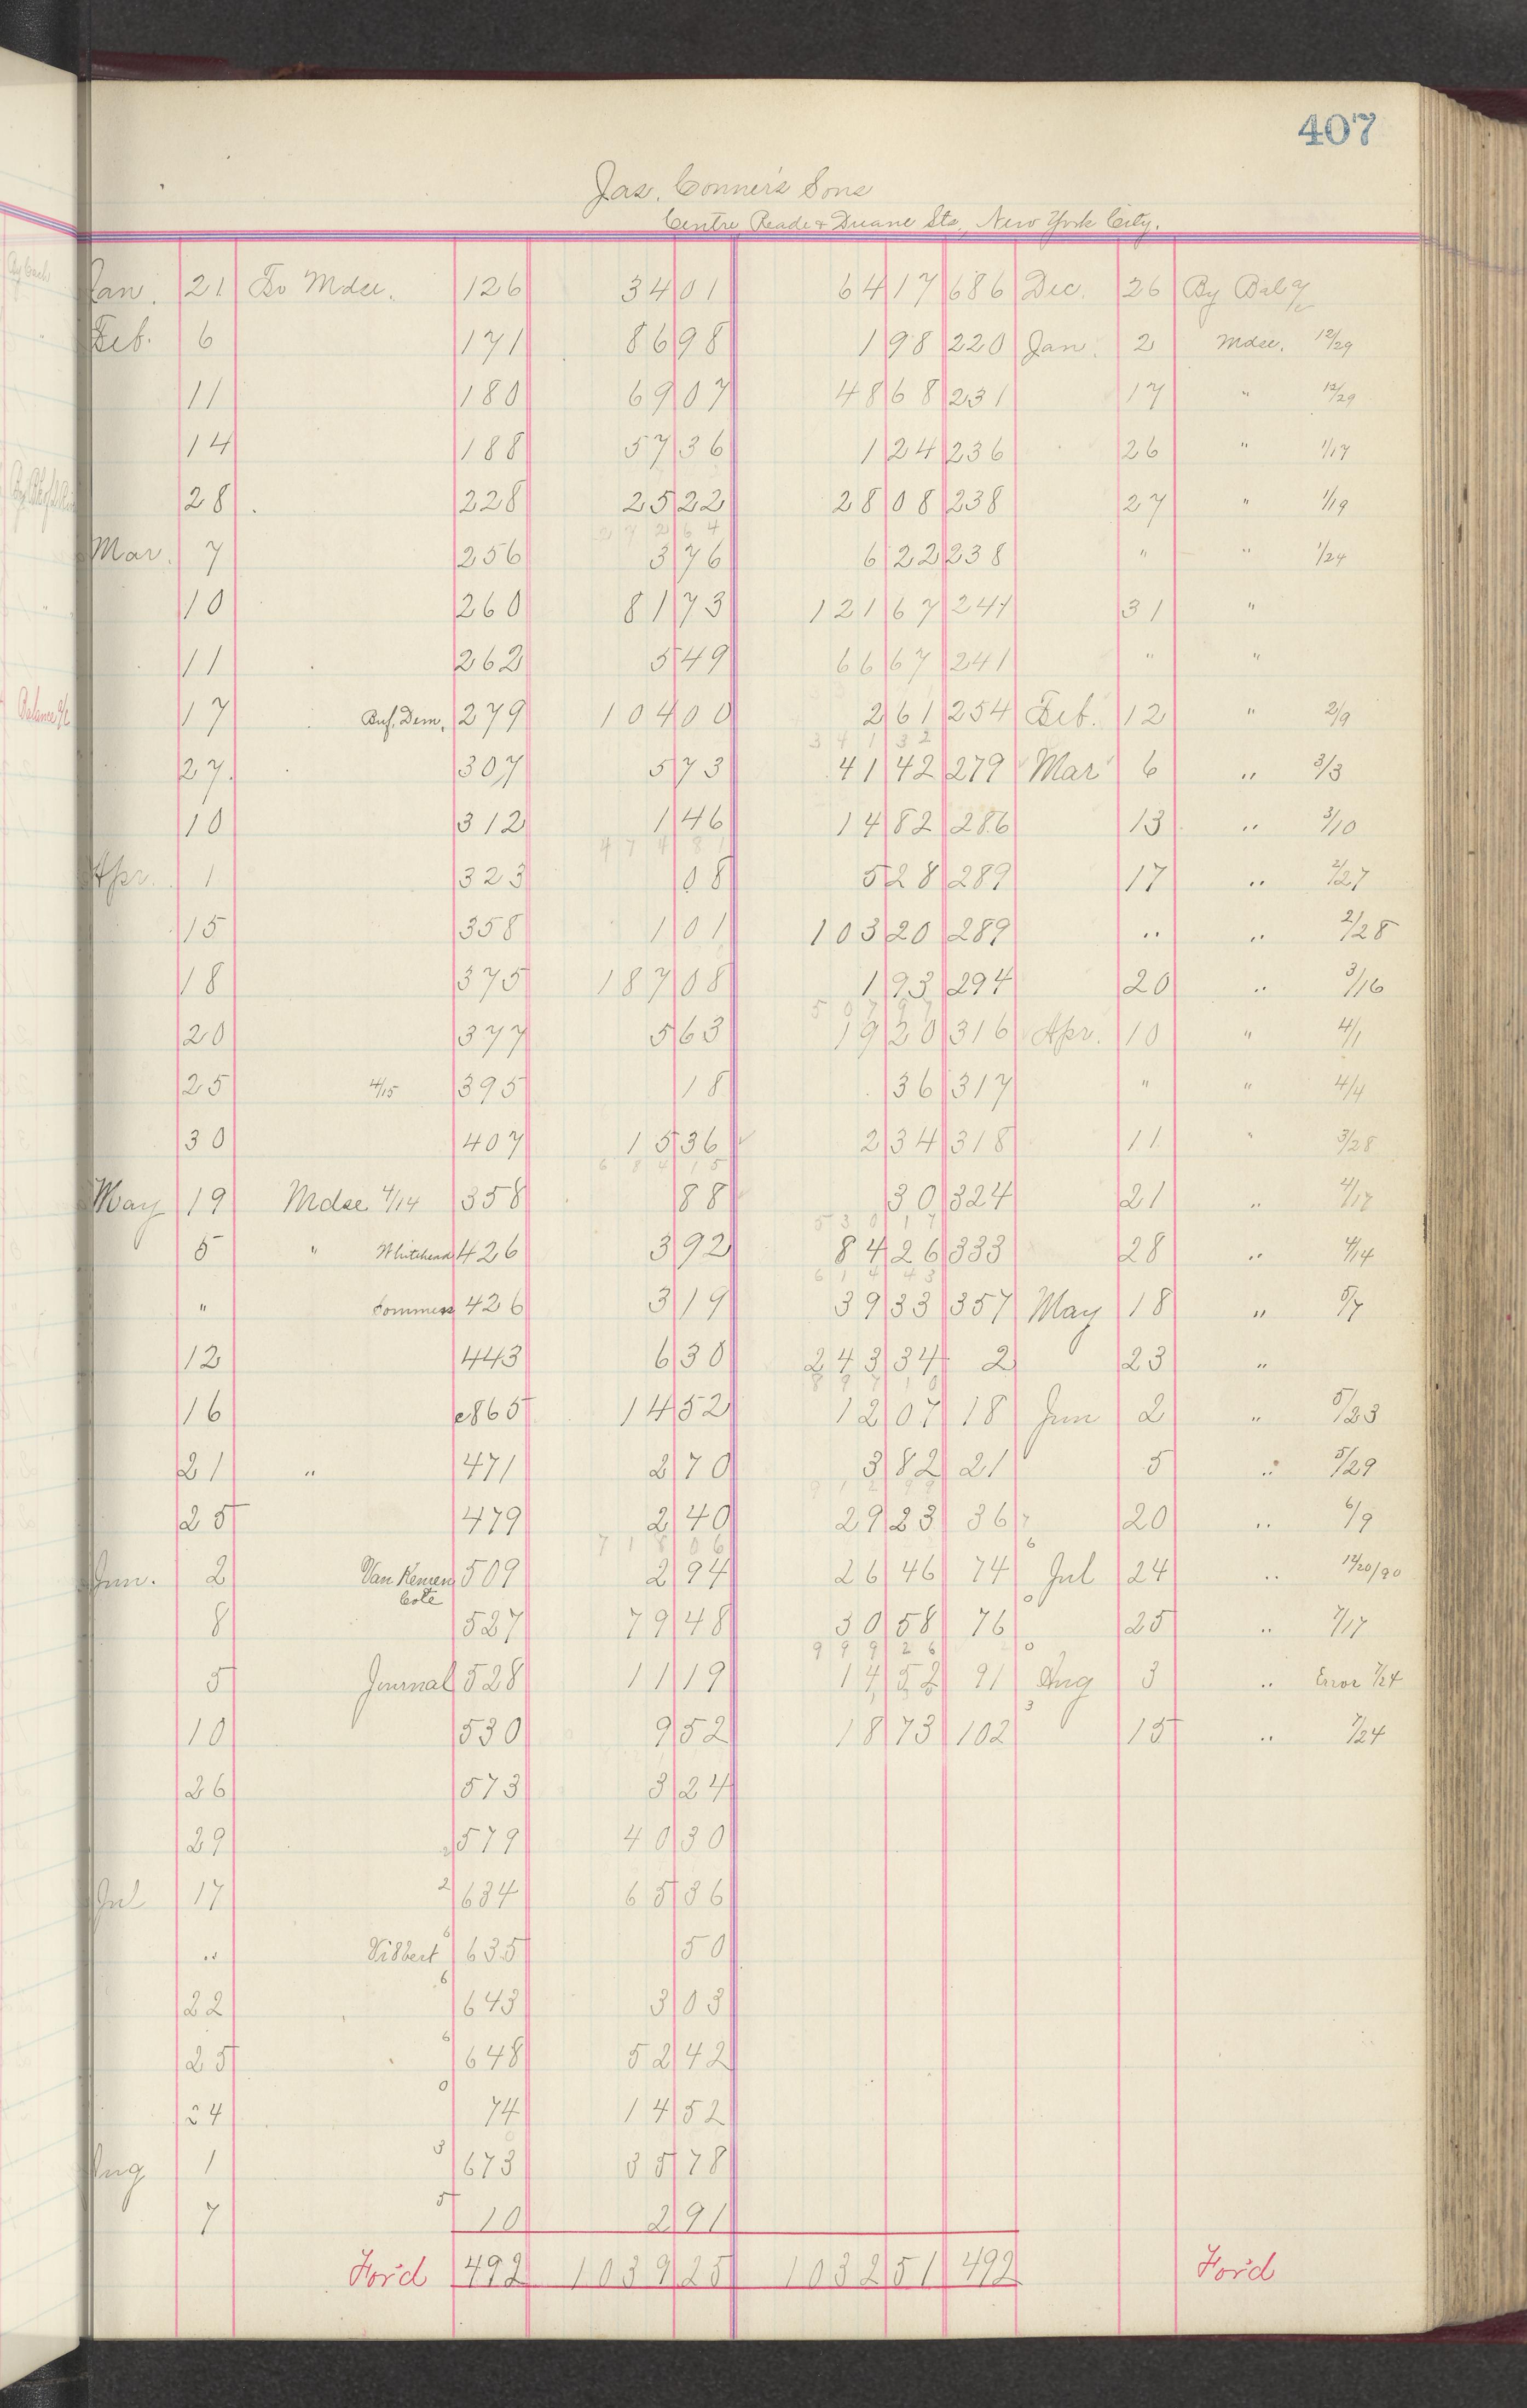 407
Jas. Conner's Sons
Centre, Reade & Duane Sts., New York City.
Jan. 21 To Mdse. 126 34 01 64 17 686 Dec. 26 By Bal %
Feb. 6 171 86 98 1 98 220 Jan. 2 Mdse. 12/29
11 180 69 07 48 68 231 17 " 12/29
14 188 57 36 1 24 236 26 " 1/17
28 228 25 22 28 08 238 27 " 1/19
272 64
Mar. 7 256 3 76 6 22 238 " " 1/24
10 260 81 73 121 67 241 31 "
11 262 5 49 66 67 241 " "
17 Buf. Dem. 279 104 00 2 61 254 Feb. 12 " 2/9
341 32
27 307 5 73 41 42 279 Mar 6 " 3/3
10 312 1 46 14 82 286 13 " 3/10
474 81
Apr. 1 323 08 5 28 289 17 " 2/27
15 358 1 01 103 20 289 " " 2/28
18 375 187 08 1 93 294 20 " 3/16
507 97
20 377 5 63 19 20 316 Apr. 10 " 4/1
25 4/15 395 18 36 317 " " 4/4
30 407 15 36 2 34 318 11 " 3/28
684 15
May 19 Mdse 4/14 358 88 30 324 21 " 4/17
530 17
5 " Whitehead 426 3 92 84 26 333 28 " 4/14
614 43
" Sommers 426 3 19 39 33 357 May 18 " 5/7
12 443 6 30 243 34 2 23 "
897 10
16 e865 14 52 12 07 18 Jun 2 " 5/23
21 " 471 2 70 3 82 21 5 " 5/29
912 99
25 479 2 40 29 23 36 20 " 6/9
718 06
Jun. 2 Van Kenen 509 2 94 26 46 74 6 Jul 24 " 12/20/90
Cote
8 527 79 48 30 58 76 0 25 " 7/17
999 26
5 Journal 528 11 19 14 52 91 0 Aug 3 " Error 7/24
10 530 9 52 18 73 102 3 15 " 7/24
26 573 3 24
29 579 40 30
Jul 17 2 634 65 36
" Vibbert 6 635 50
22 6 643 3 03
25 6 648 52 42
24 0 74 14 52
Aug 1 3 673 35 78
7 5 10 2 91
For'd 492 1039 25 1032 51 492 For'd